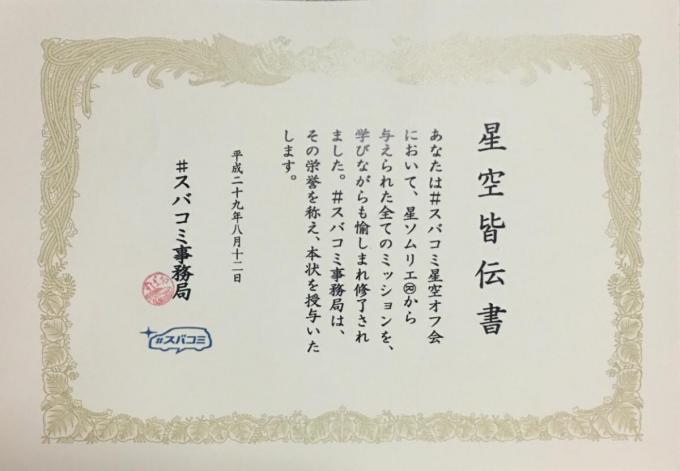 星空皆伝書
あなたは#スバコミ星空オフ会
において、星ソムリエ®から
与えられた全てのミッションを、
学びながらも愉しまれ修了され
ました。#スバコミ事務局は、
その栄誉を称え、本状を授与いた
します。
平成二十九年八月十二日
#スバコミ事務局
#スバコミ